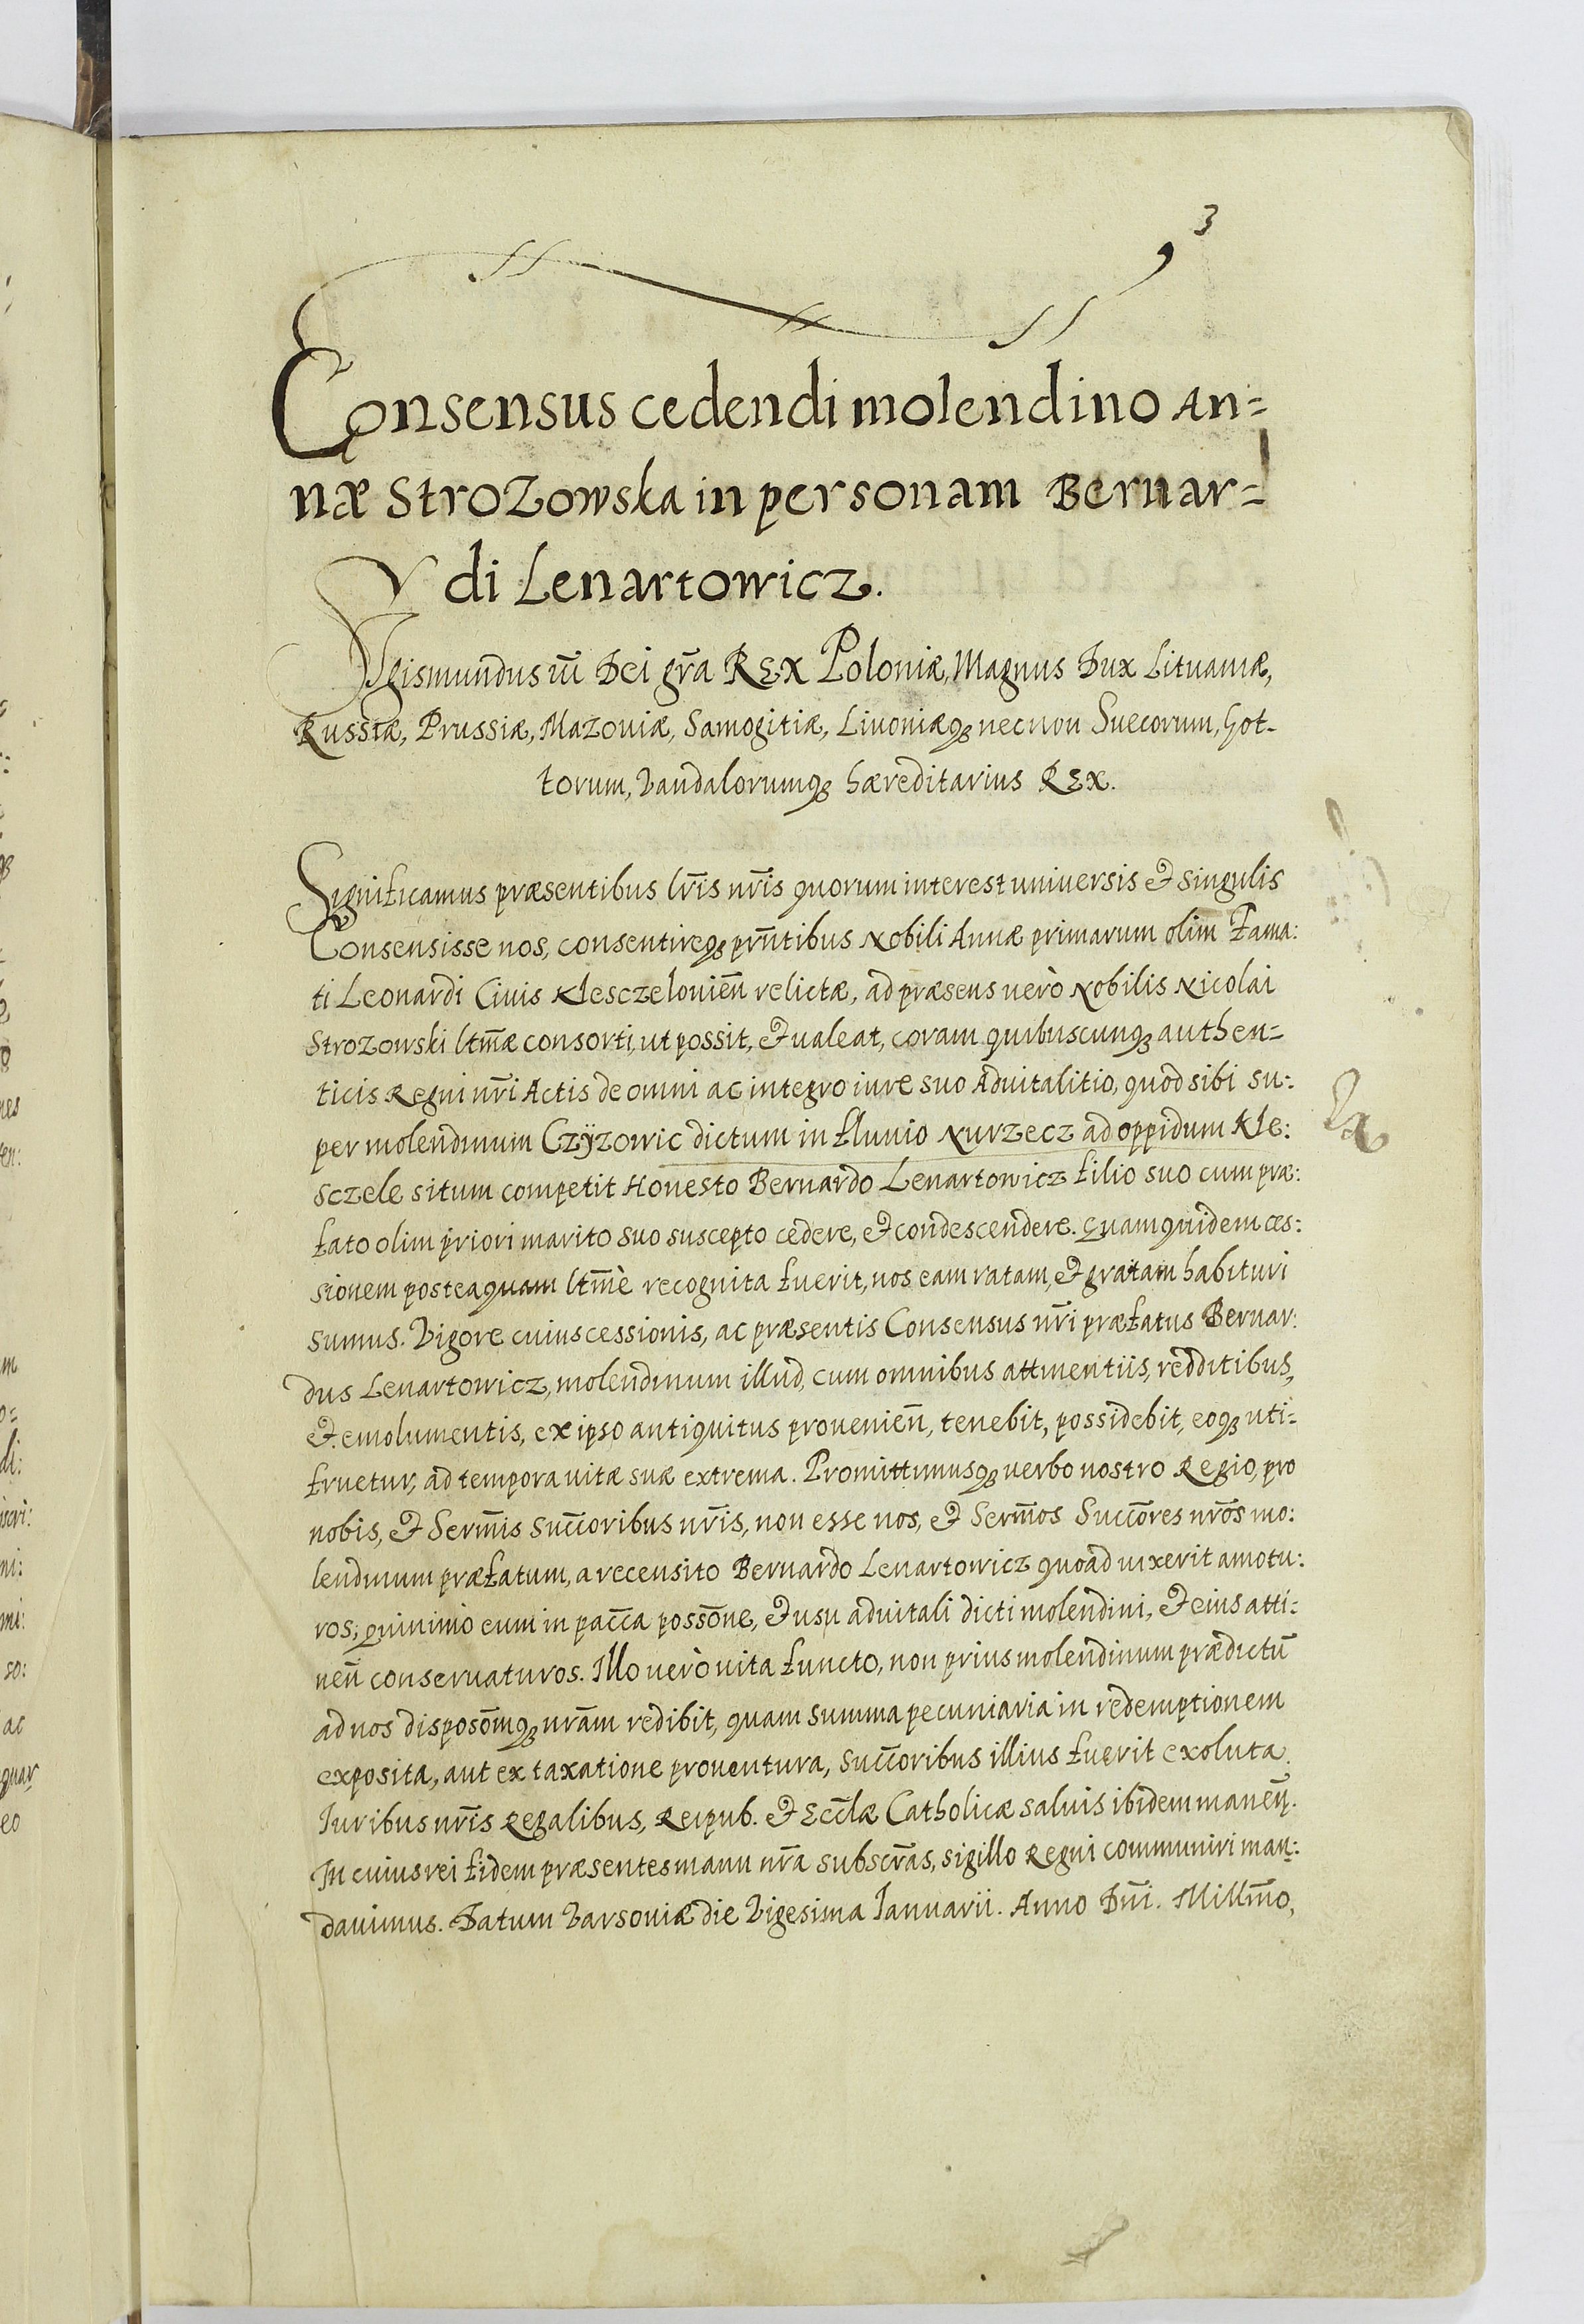 3
Consensus cedendi molendino An=
næ Strozowska in personam Bernar=
di Lenartowicz.
Sigismundus iii Dei gr̃a Rex Poloniæ, Magnus Dux Lituaniæ,
Russiæ, Prussiæ, Mazouiæ, Samogitiæ, Liuoniæqȝ necnon Suecorum, Got-
torum, Vandalorumqȝ hæreditarius Rex.
Significamus præsentibus lr̃is nr̃is quorum interest uniuersis et singulis
Consensisse nos, consentireqȝ prñtibus Nobili Annæ primarum olim Fama:
ti Leonardi Ciuis Klesczelovień relictæ, ad præsens uerò Nobilis Nicolai
Strozowski ltm̃æ consorti, ut possit, et ualeat, coram quibuscunqȝ authen=
ticis Regni nr̃i Actis de omni ac integro iure suo Aduitalitio, quod sibi su:
per molendinum Czÿzowic dictum in fluuio Nurzecz ad oppidum Kle:
sczele situm competit Honesto Bernardo Lenartowicz filio suo cum præ:
fato olim priori marito suo suscepto cedere, et condescendere. Quam quidem ces:
sionem posteaquam ltm̃è recognita fuerit, nos eam ratam, et gratam habituri
sumus. Vigore cuius cessionis, ac præsentis Consensus nr̃i præfatus Bernar:
dus Lenartowicz, molendinum illud, cum omnibus attinentiis, redditibus,
et emolumentis, ex ipso antiquitus prouenień, tenebit, possidebit, eoqȝ uti=
fruetur, ad tempora uitæ suæ extrema. Promittimusqȝ uerbo nostro Regio, pro
nobis, et Serm̃is Succ̃oribus nr̃is, non esse nos, et Serm̃os Succõres nr̃os mo:
lendinum præfatum, a recensito Bernardo Lenartowicz quoad uixerit amotu:
ros; quinimo eum in pacc̃a possõne, et usu aduitali dicti molendini, et eius atti:
neñ conseruaturos. Illo uerò uita functo, non prius molendinum prædictũ
ad nos disposõmqȝ nr̃am redibit, quam summa pecuniaria in redemptionem
exposita, aut ex taxatione prouentura, succ̃oribus illius fuerit exoluta.
Iuribus nr̃is Regalibus, Reipub. et Eccl̃æ Catholicæ saluis ibidem maneñ.
In cuius rei fidem præsentes manu nr̃a subscr̃as, sigillo Regni communiri man:
dauimus. Datum Varsouiæ die Vigesima Ianuarii. Anno Dñi. Millm̃o,